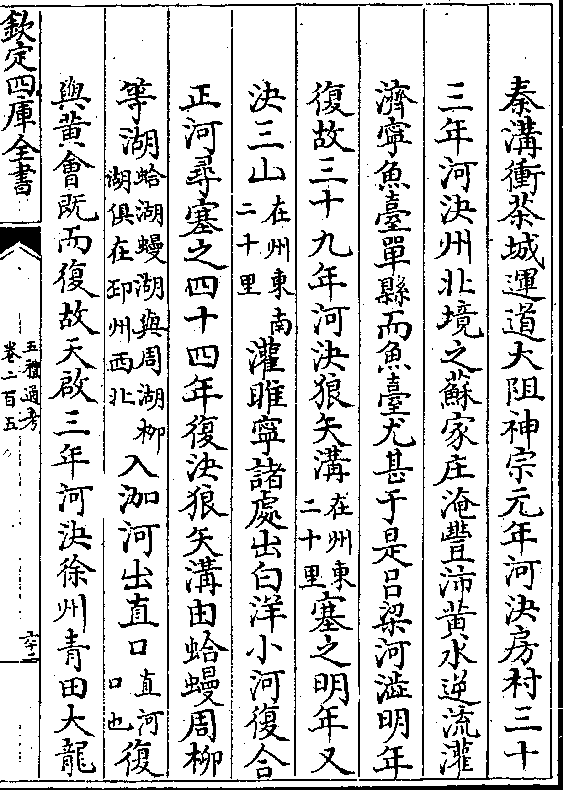 秦溝衝茶城運道大阻神宗元年河決房村三十
三年河決州北境之蘇家庄淹豐沛黄水逆流灌
濟寧魚臺單縣而魚臺尤甚于是吕梁河澁明年
復故三十九年河決狼矢溝在州東二十里塞之明年又
決三山在州東南二十里灌睢寧諸處出白洋小河復合
正河尋塞之四十四年復決狼矢溝由蛤蟃周柳
等湖蛤湖蟃湖與周湖柳湖俱在邳州西北入泇河出直口直河口也復
與黄會既而復故天啟三年河決徐州青田大龍
欽定四庫全書
五禮通考
卷二百五
六十二